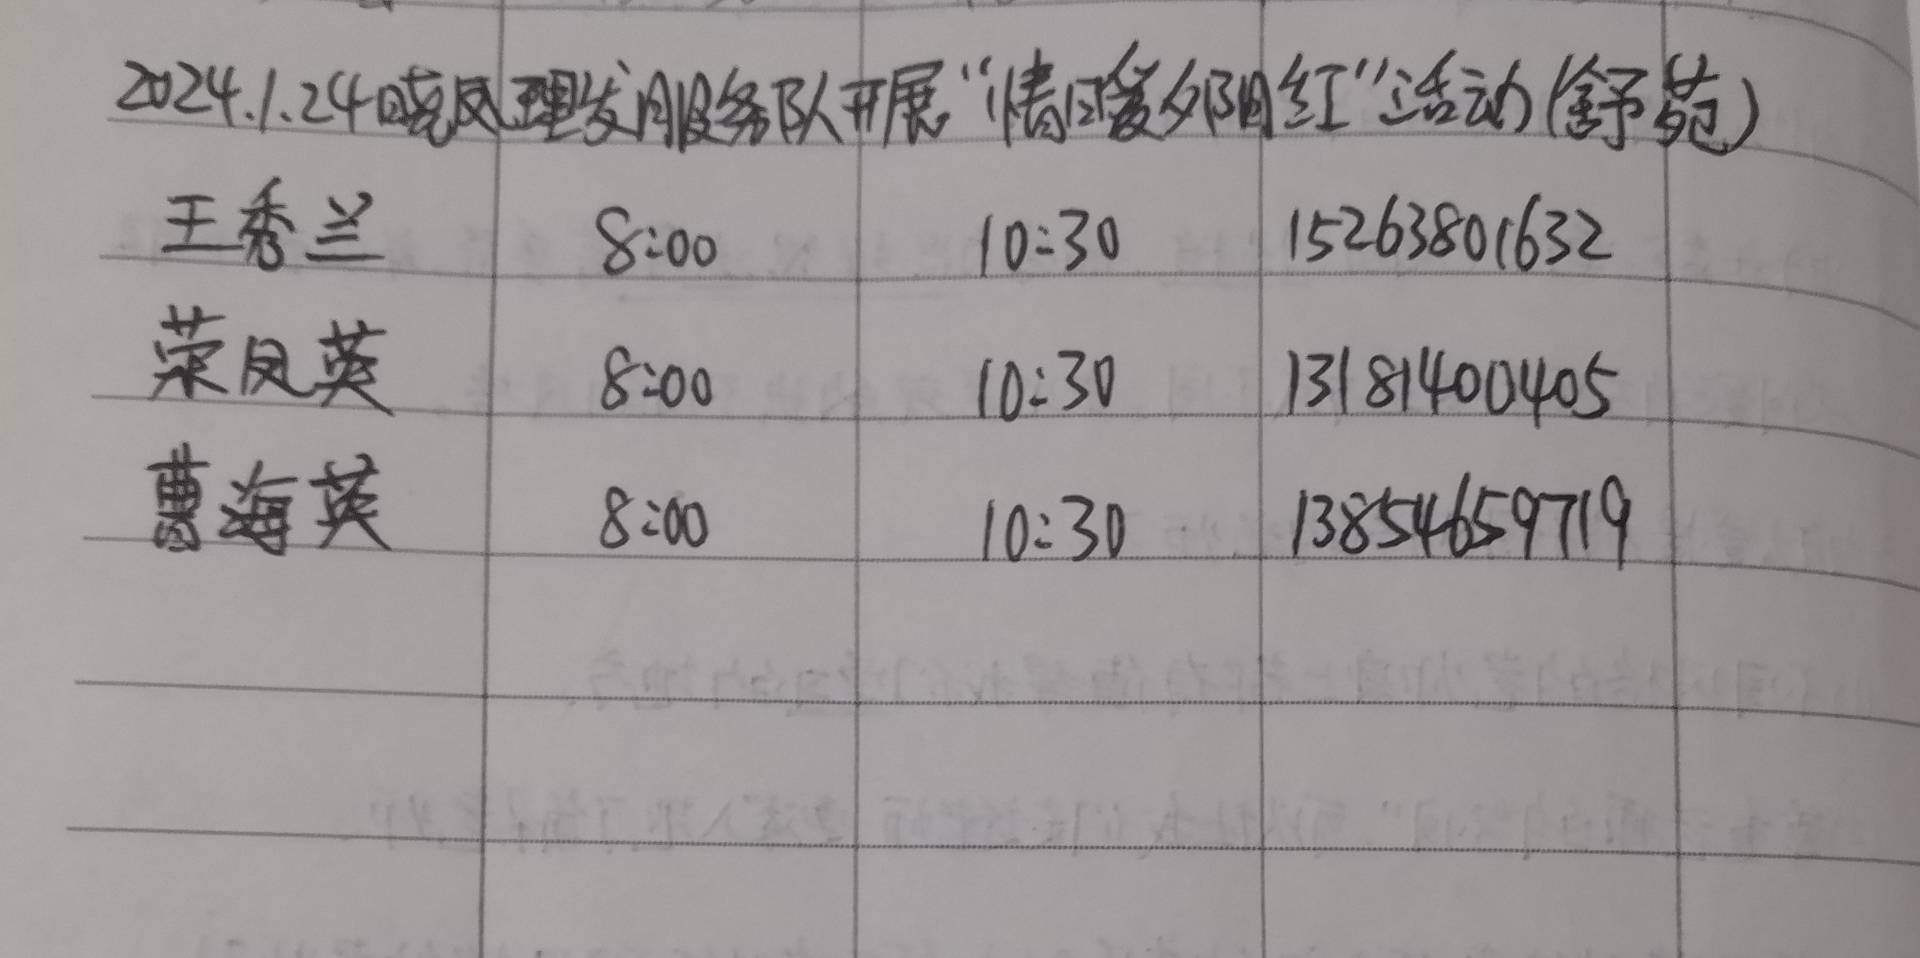 2024.1.24晓凤理发服务队开展“情暖夕阳红”活动(舒苑)
王秀兰 8:00 10:30 15263801632
荣凤英 8:00 10:30 13181400405
曹海英 8:00 10:30 13854659719